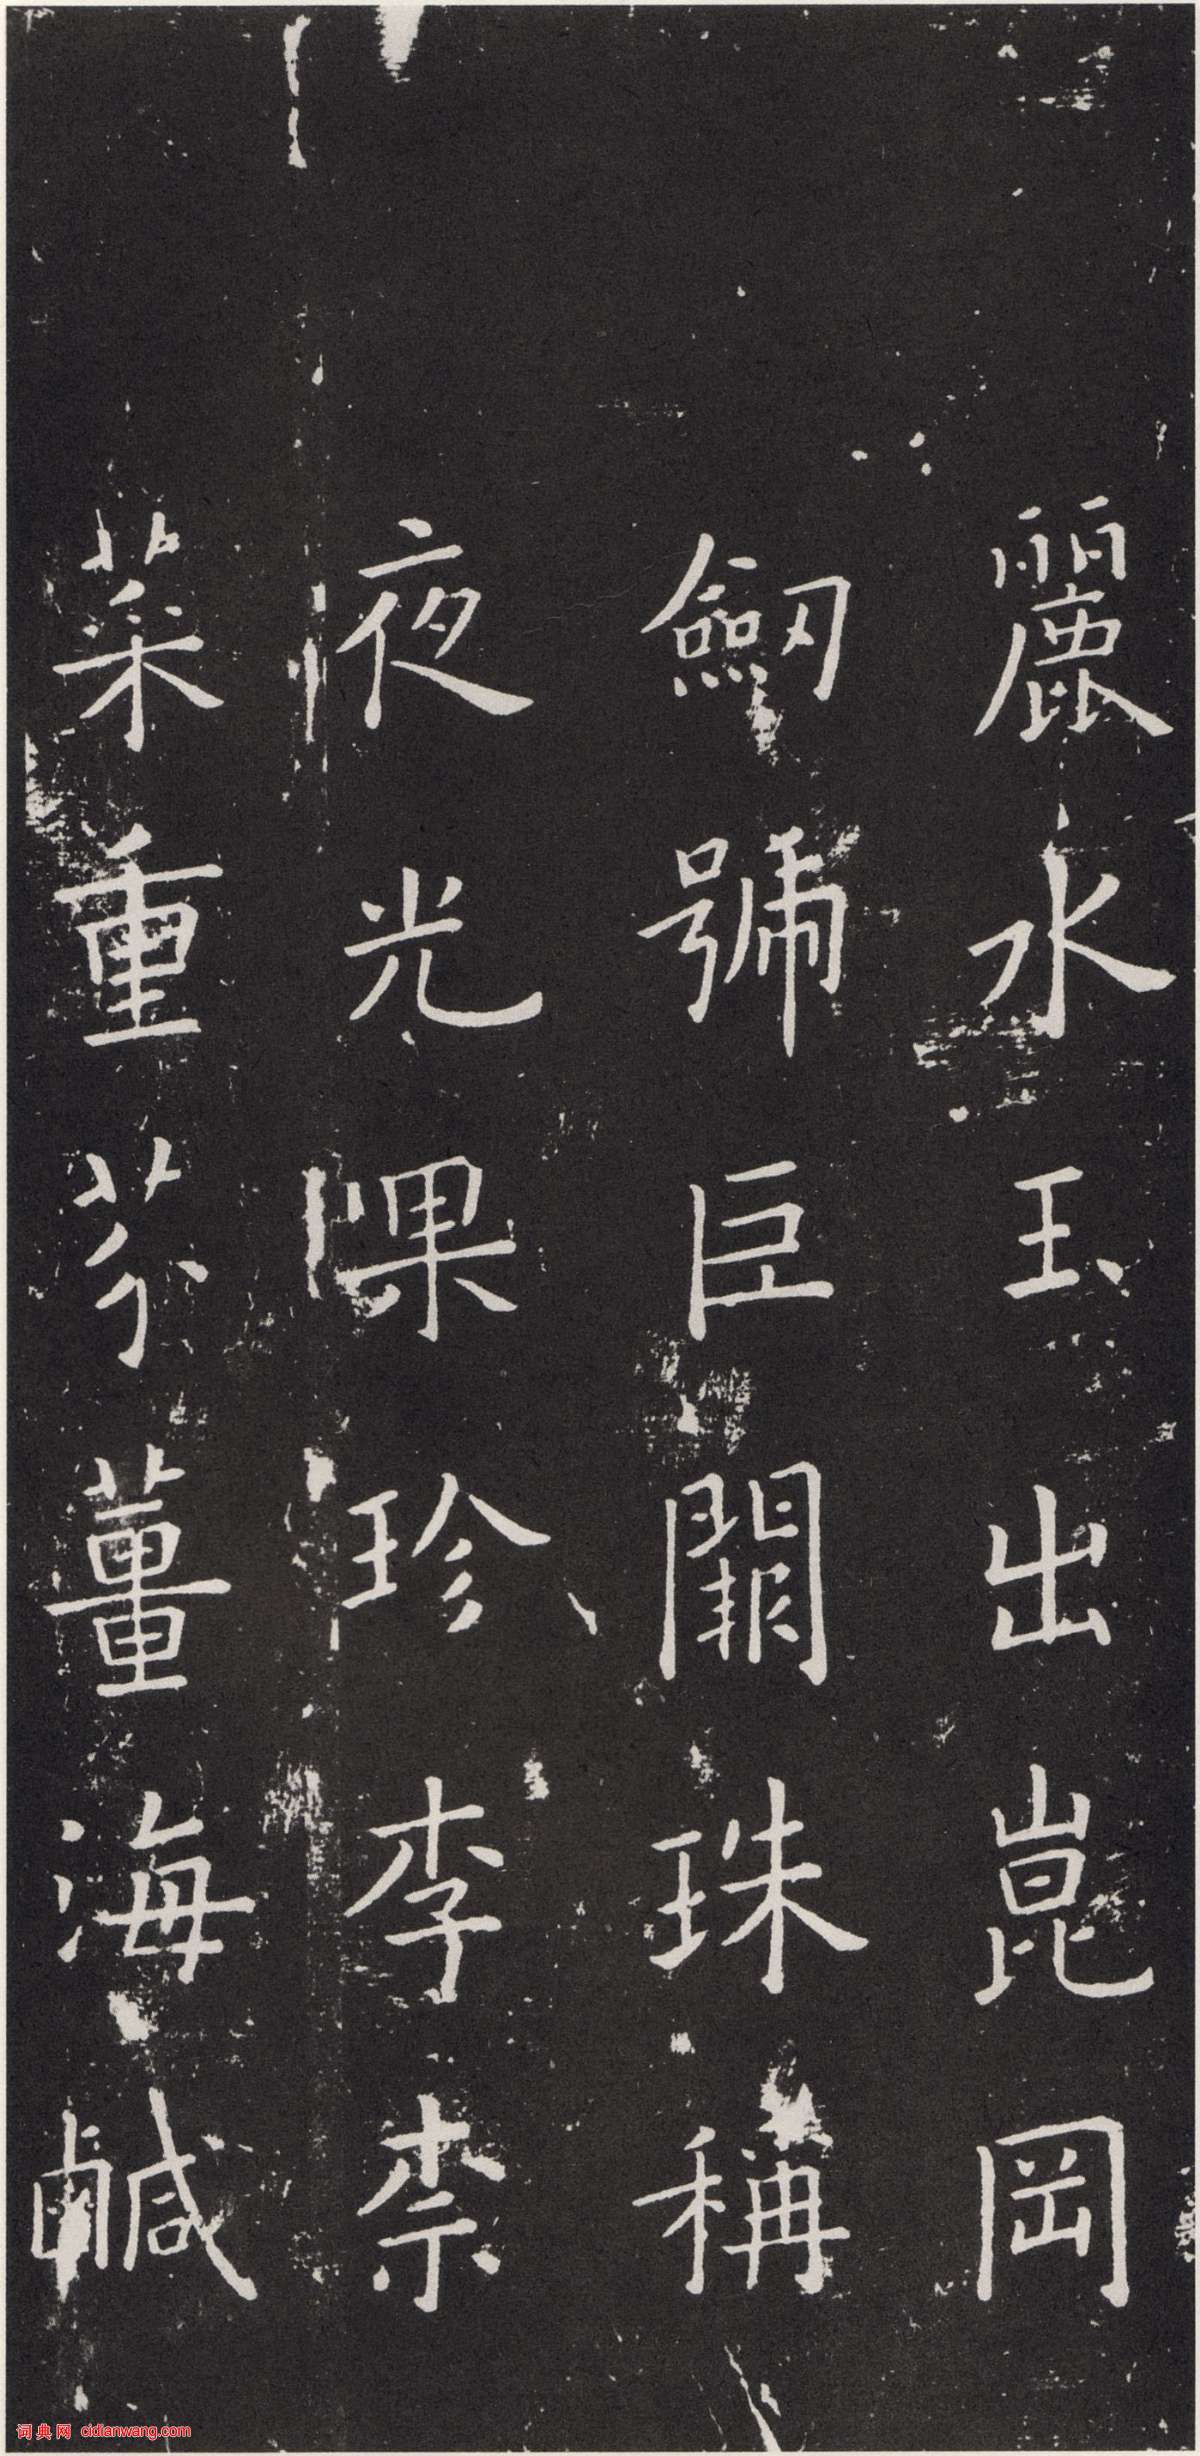 麗水玉出崑岡
劒號巨闕珠稱
夜光果珍李柰
菜重芥薑海鹹
词典网 cidianwang.com